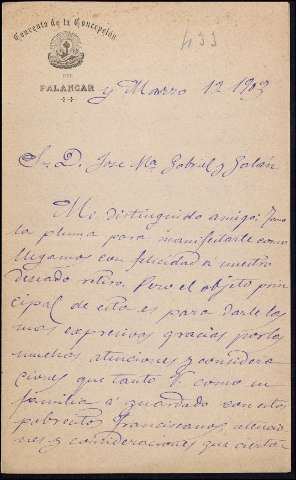 Convento de la Concepción
DEL
PALANCAR
433
y Marzo 12 1903
Sr. D. Jose Ma Gabriel y Galán
Mi distinguido amigo: Tomo
la pluma para manifestarle como
llegamos con felicidad a nuestro
deseado retiro. Pero el objeto prin
cipal de esta es para darle las
mas expresivas gracias por las
muchas atenciones y considera
ciones que tanto V. como su
familia a guardado con estos
pobrecitos Franciscanos, atencio
nes y consideraciones que ciertar